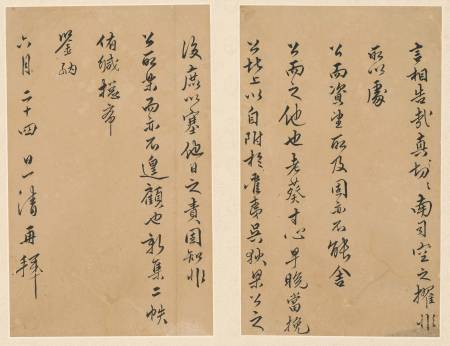 言相告哉真切々南司空之擢非
所以處
公而資望所及固亦不能舍
公而之他也老蔡才心早晚當挽
公北上以自附於崔吳狄梁公之
後庶以塞他日之責固知非
公所樂而亦不遑顧也新集二帙
侑緘
鑒納
六月二十四日一清再拜